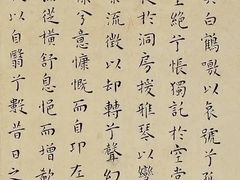 白鶴噭以哀號兮孤
望絕兮悵獨託於空堂
於洞房援雅琴以變
流徵以却轉兮聲幻
操兮意慷慨而自卬左
從橫舒息悒而增欷
以自翳兮數昔日之